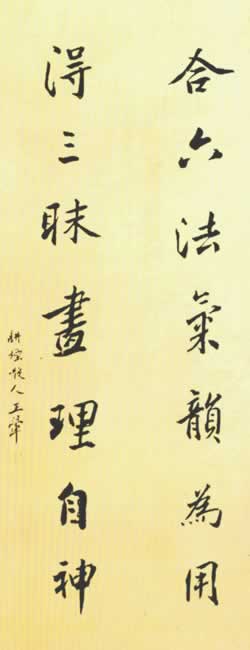 合六法氣韻為用
得三昧畫理自神
耕煙散人王翬